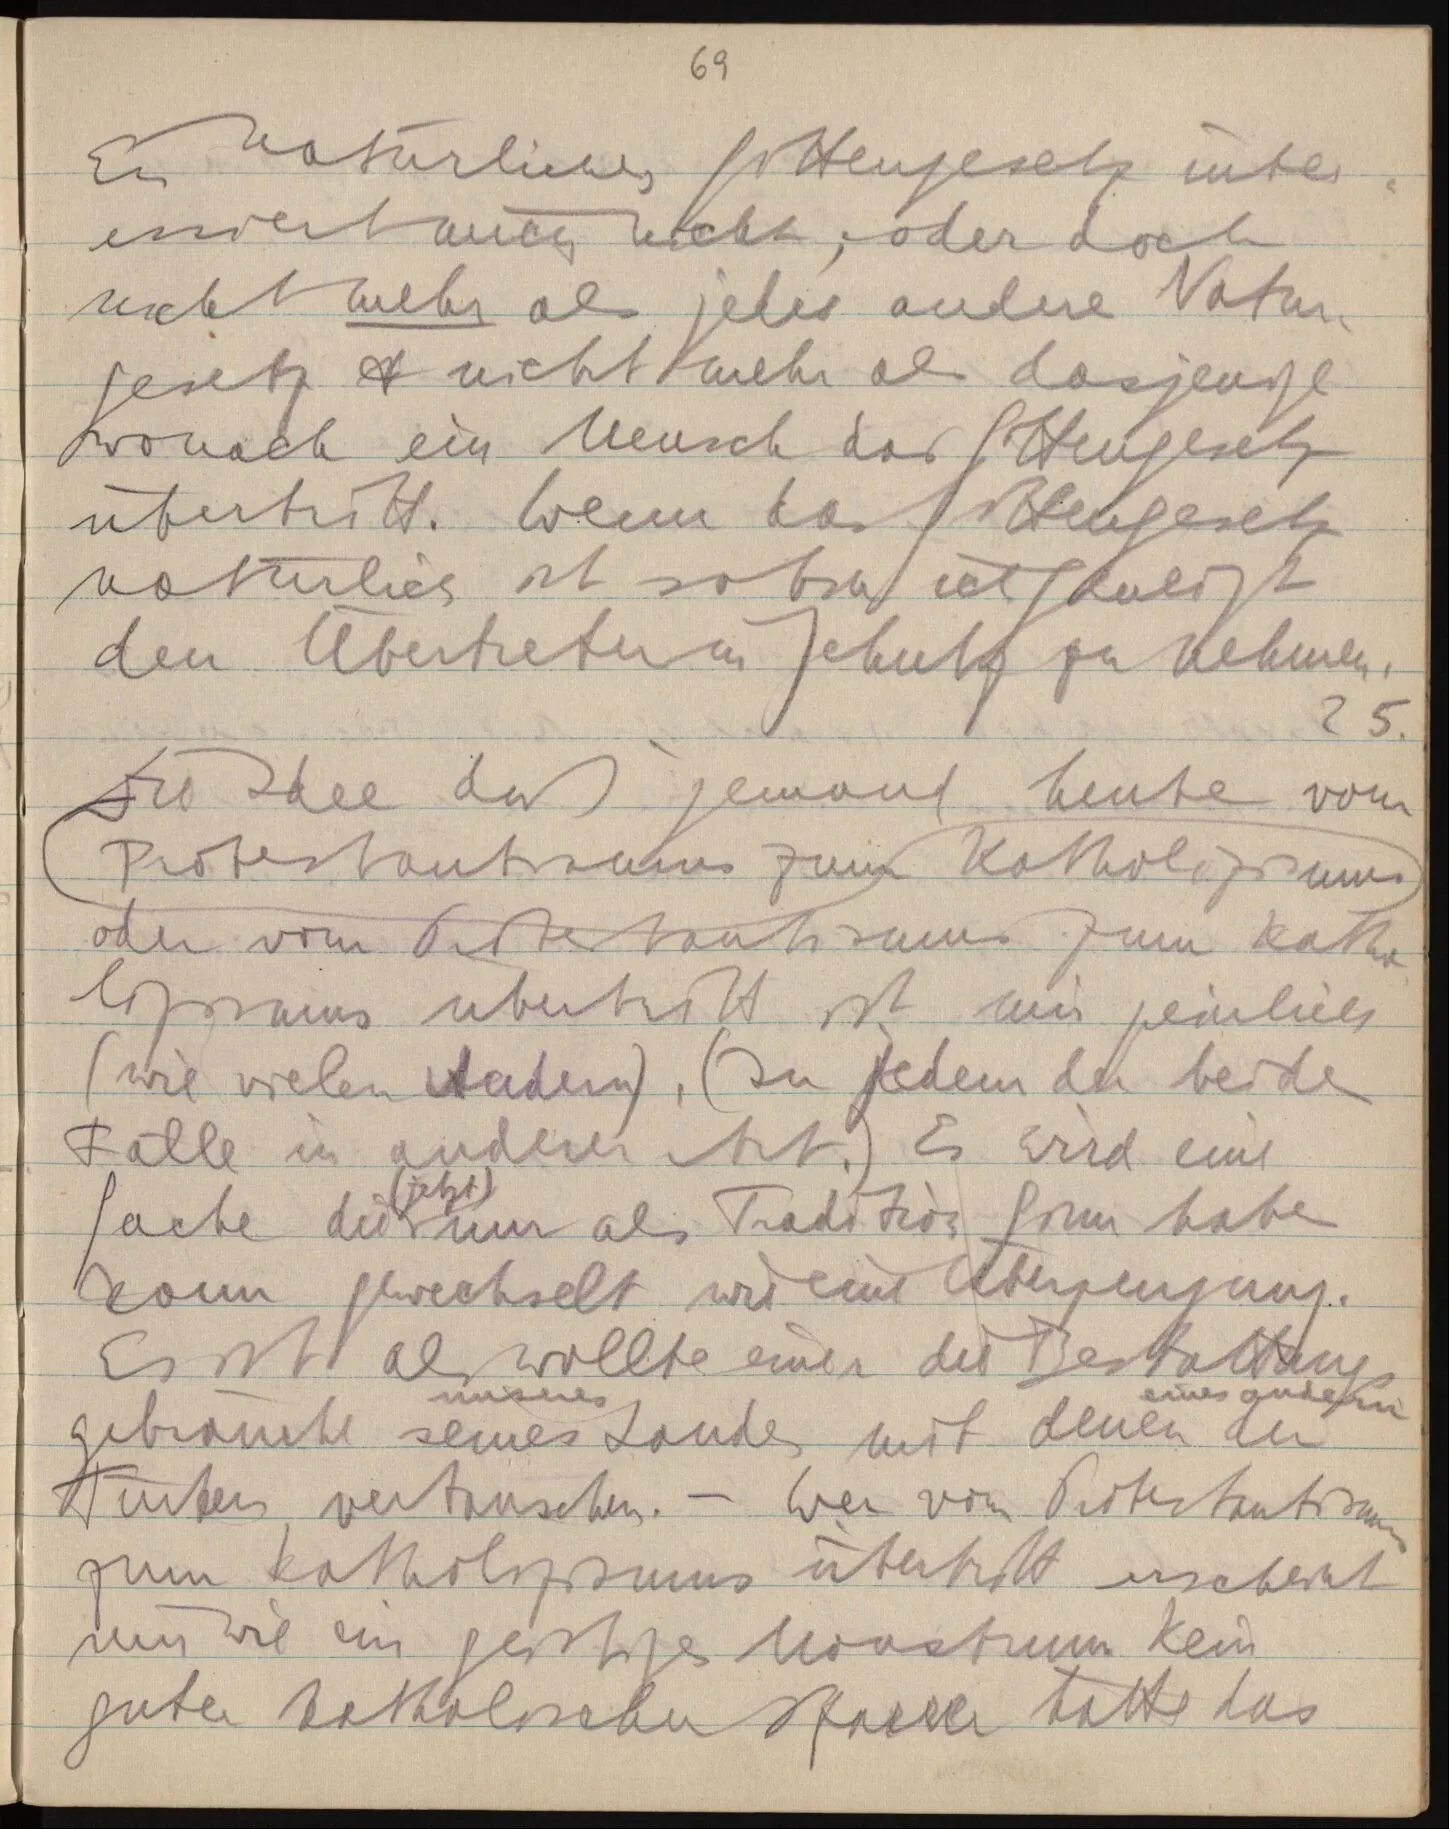 69
Ein natürliches Sittengesetz inter-
essiert mich nicht; oder doch
nicht mehr als jedes andere Natur-
gesetz & nicht mehr als dasjenige
wonach ein Mensch das Sittengesetz
übertritt. Wenn das Sittengesetz
natürlich ist so bin ich geneigt
den Übertreter in Schutz zu nehmen.
25.
Die Idee daß jemand heute vom
Protestantismus zum Katholizismus
oder vom Protestantismus zum Katho
lizismus übertritt ist mir peinlich
(wie vielen Andern). (In jedem der beide
Fälle in anderer Art.) Es wird eine
(jetzt)
Sache die nur als Tradition Sinn habe
kann gewechselt wie eine Überzeugung.
Es ist als wollte einer die Bestattungs
unseres eines andern
gebräuche seines Landes mit denen der
Türken vertauschen. – Wer vom Protestantismus
zum Katholizismus übertritt erscheint
mir wie ein geistiges Monstrum. Kein
guter katholischer Pfarrer hätte das